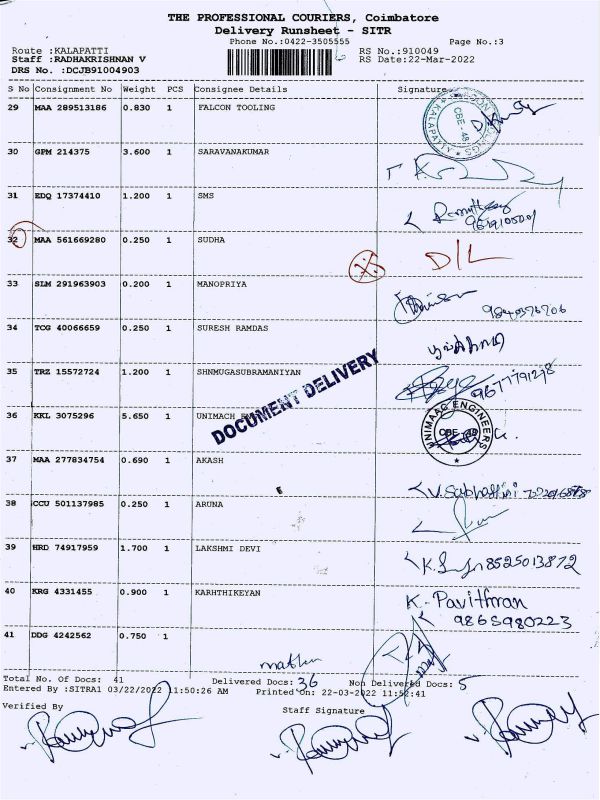 THE PROFESSIONAL COURIERS, Coimbatore
Delivery Runsheet - SITR
Phone No.:0422-3505555 Page No.:3
Route :KALAPATTI RS No.:910049
Staff :RADHAKRISHNAN V RS Date:22-Mar-2022
DRS No. :DCJB91004903
S No Consignment No Weight PCS Consignee Details Signature
29 MAA 289513186 0.830 1 FALCON TOOLING
KALAPATTY CBE-48
30 GPM 214375 3.600 1 SARAVANAKUMAR
31 EDQ 17374410 1.200 1 SMS
32 MAA 561669280 0.250 1 SUDHA D/L
33 SLM 291963903 0.200 1 MANOPRIYA
34 TCG 40066659 0.250 1 SURESH RAMDAS
35 TRZ 15572724 1.200 1 SHNMUGASUBRAMANIYAN
DOCUMENT DELIVERY
36 KKL 3075296 5.650 1 UNIMACH
UNIMAAC ENGINEERS CBE
37 MAA 277834754 0.690 1 AKASH
38 CCU 501137985 0.250 1 ARUNA
39 HRD 74917959 1.700 1 LAKSHMI DEVI
8525013872
40 KRG 4331455 0.900 1 KARHTHIKEYAN K. Pavithran
9865980223
41 DDG 4242562 0.750 1
Total No. Of Docs: 41 Delivered Docs: 36 Non Delivered Docs: 5
Entered By :SITRA1 03/22/2022 11:50:26 AM Printed On: 22-03-2022 11:52:41
Verified By Staff Signature